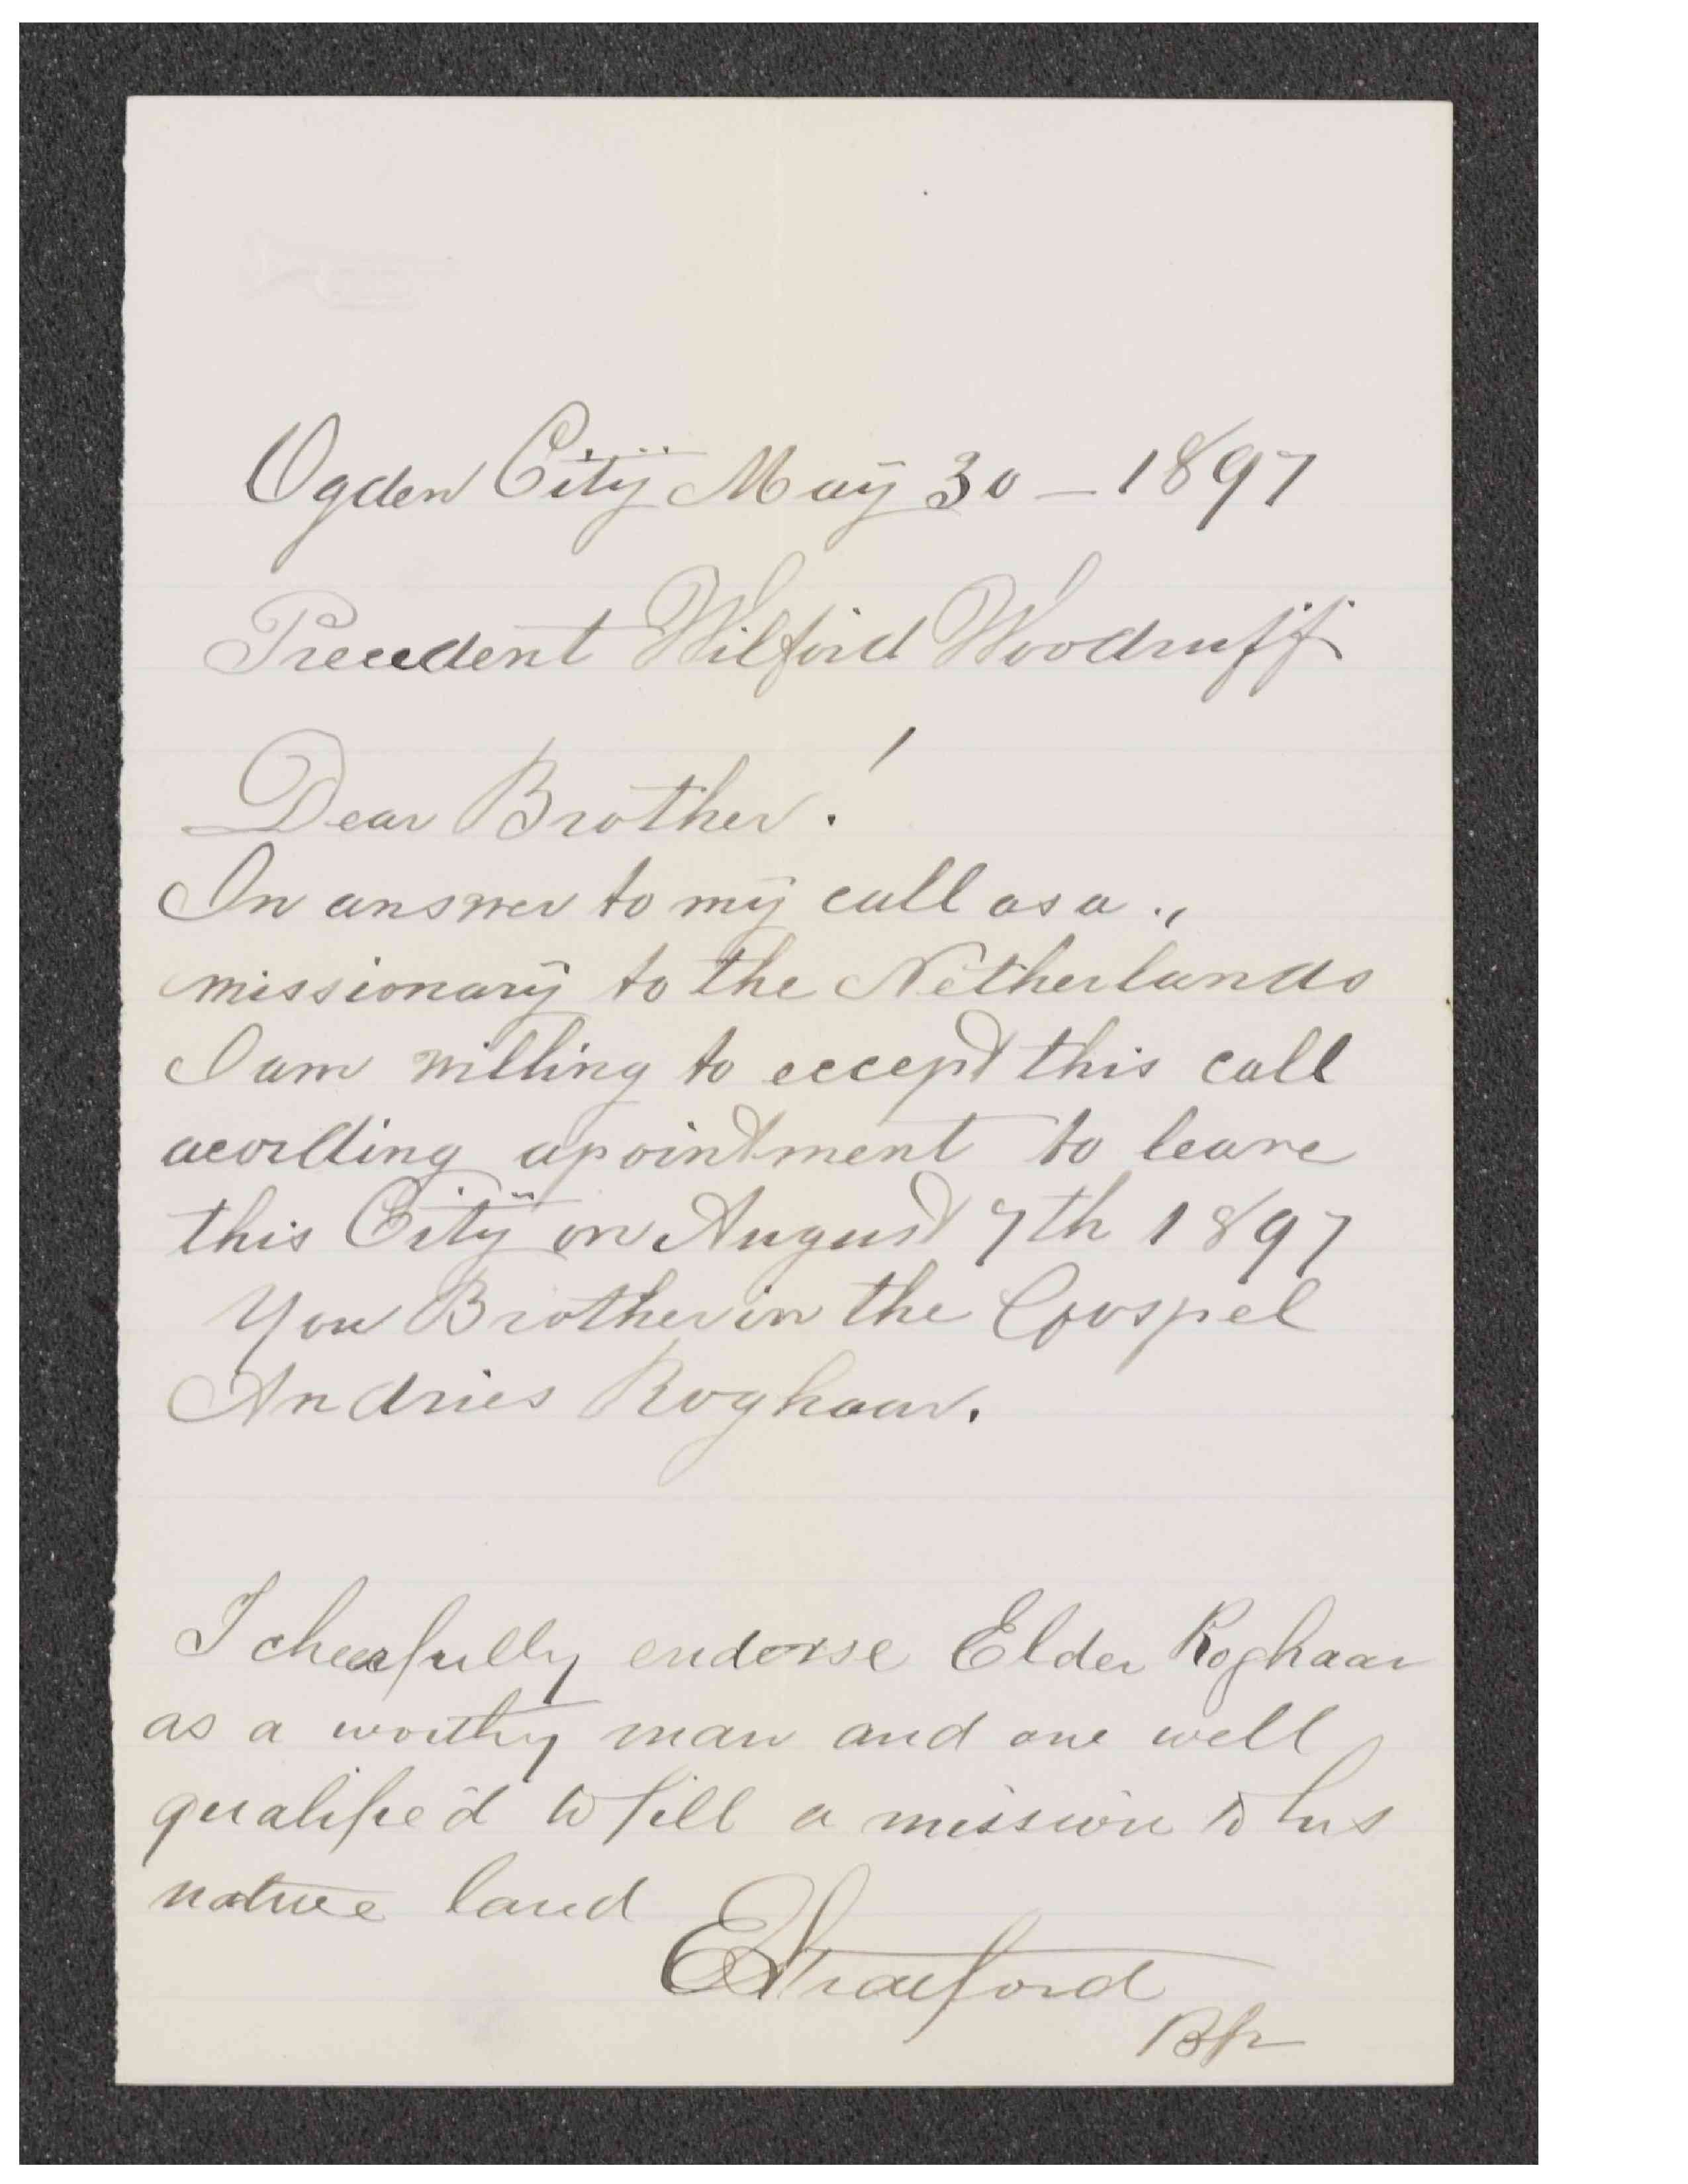 Ogden City May 30 – 1897
Precedent Wilford Woodruff
Dear Brother!
In answer to my call as a
missionary to the Netherlands
I am willing to eccept this call
acording apointment to leave
this City on August 7th 1897
Your Brother in the Gospel
Andries Roghaar.
I cheerfully endorse Elder Roghaar
as a worthy man and one well
qualified to fill a mission to his
native land
E Stratford
Bp